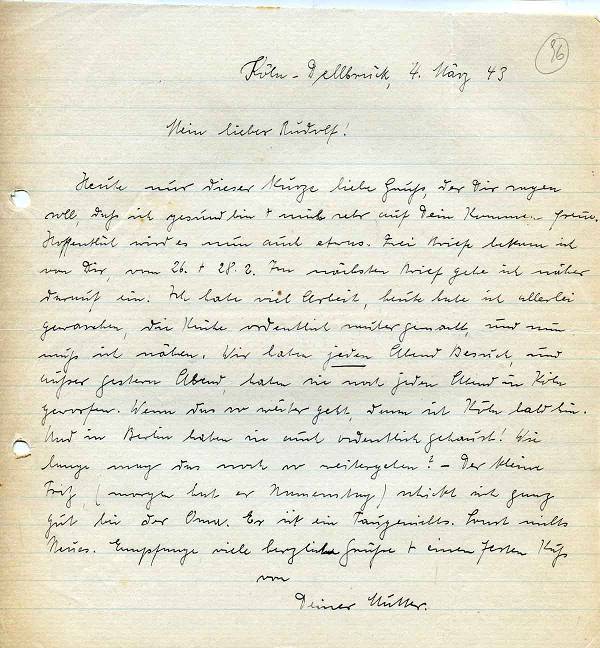 96
Köln-Dellbrück, 4. März 43
Mein lieber Rudolf!
Heute nur dieser kurze liebe Gruß, der Dir sagen
soll, daß ich gesund bin + mich sehr auf Dein Kommen freue.
Hoffentlich wird es nun auch etwas. Zwei Briefe bekam ich
von Dir, vom 26. + 28.2. Im nächsten Brief gehe ich näher
darauf ein. Ich habe viel Arbeit, heute habe ich allerlei
gewaschen, die Küche ordentlich sauber gemacht, und nun
muß ich nähen. Wir haben jeden Abend Besuch, und
außer gestern Abend, haben sie noch jeden Abend in Köln
geworfen. Wenn das so weiter geht, dann ist Köln bald hin.
Und in Berlin haben sie auch ordentlich gehaust! Wie
lange mag das noch so weitergehen? – Der kleine
Fritz (morgen hat er Namenstag) schickt sich ganz
gut bei der Oma. Er ist ein Taugenichts. Sonst nichts
Neues. Empfange viele herzliche Grüße + einen festen Kuß
von
Deiner Mutter.